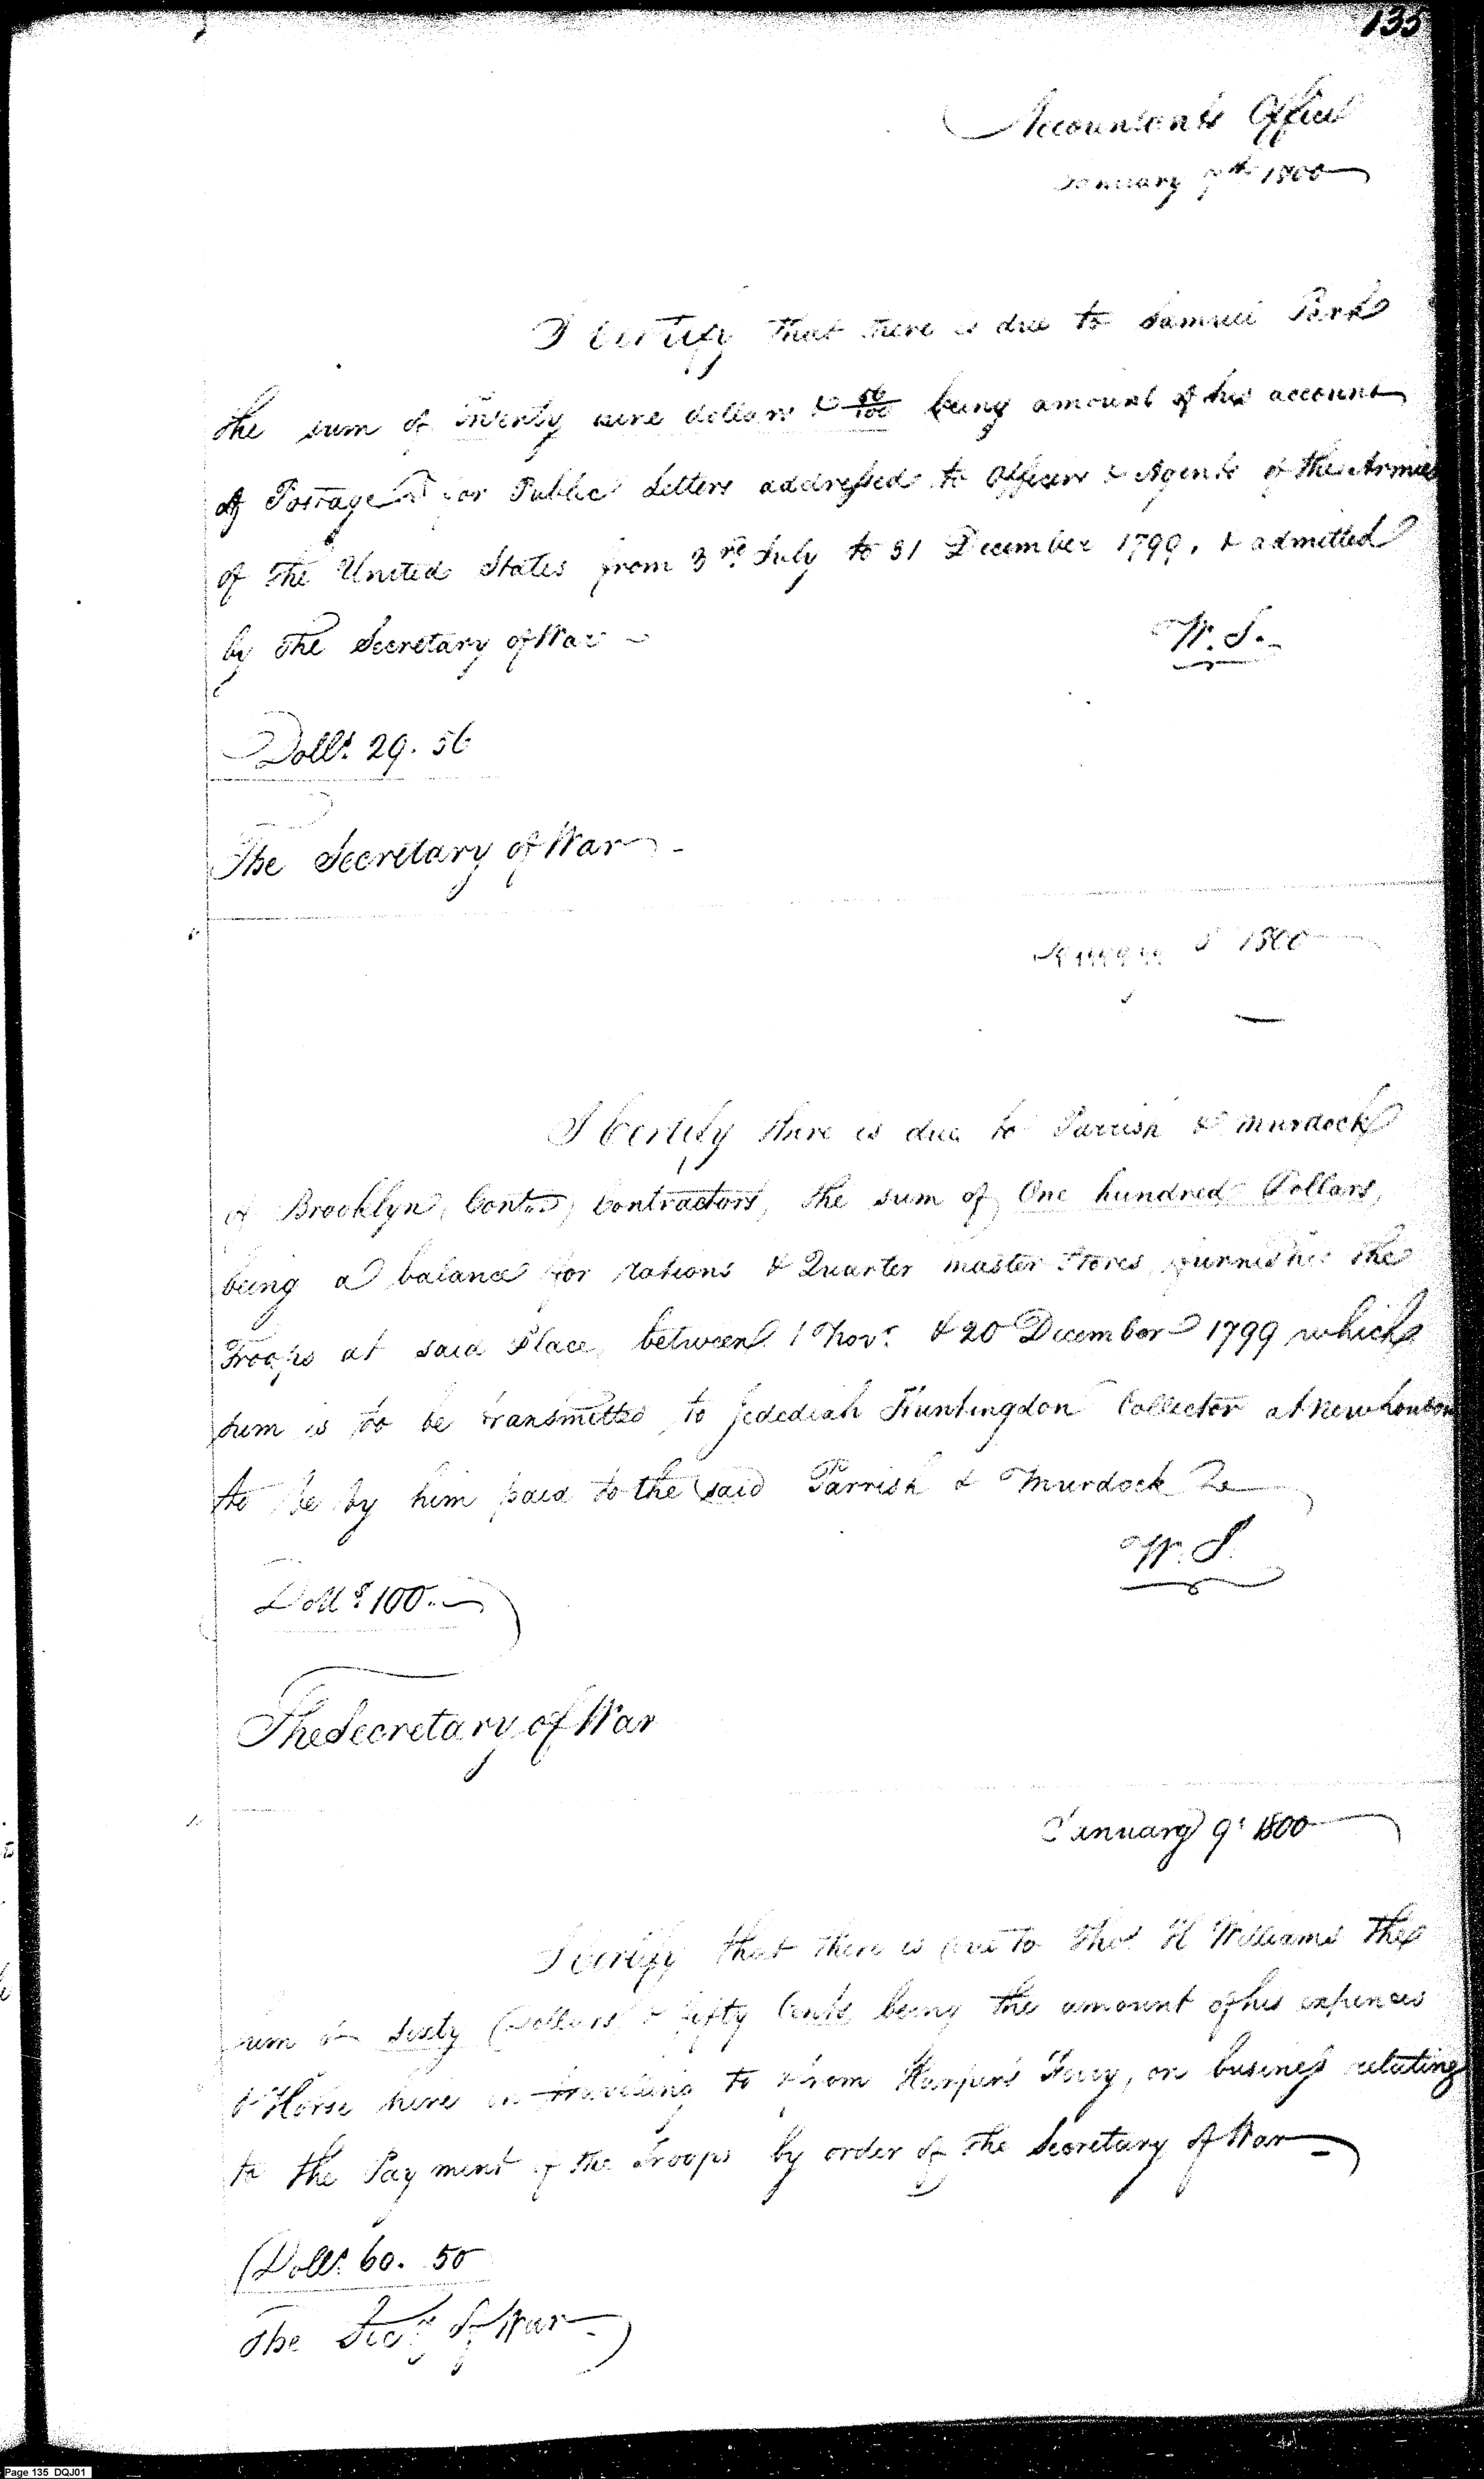 135
Accountants Office
January 7th 1800
I Certify that there is due to Samuel Park
the sum of Twenty nine dollars & 56/100 being amount of his account
of Postage for Public Letters addressed to Officers & Agents of the Armies
of the United States from 3rd July to 31 December 1799, & admitted
by the Secretary of War
W. S.
Dolls. 29. 56
The Secretary of War
January 8 1800
I Certify there is due to Parrish & Murdock
of Brooklyn, Contt., Contractors, the sum of One hundred Dollars,
being a balance for rations & Quarter master Stores furnished the
Troops at said Place, between 1 Novr. & 20 December 1799 which
sum is to be transmitted to Jedediah Huntingdon Collector at New London
to be by him paid to the said Parrish & Murdock
W. S.
Dolls. 100.
The Secretary of War
January 9t 1800
I Certify that there is due to Thos. H Williams the
sum of Sixty Dollars & fifty Cents, being the amount of his expences
& Horse hire in traveling to & from Harper's Ferry, on business relating
to the Payment of the Troops by order of the Secretary of War
Dolls. 60. 50
The Secy. of War
Page 135 DQJ01